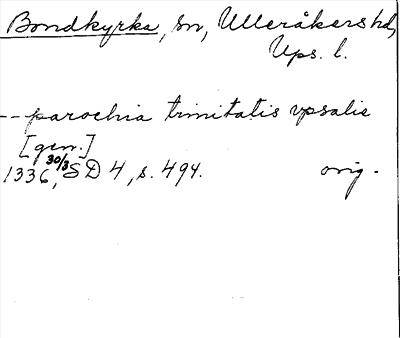 Bondkyrka, sn, Ulleråkers hd,
Ups. l.
-- parochia trinitatis vpsalis
[gen.]
1336 30/3, SD 4, s. 494. orig.